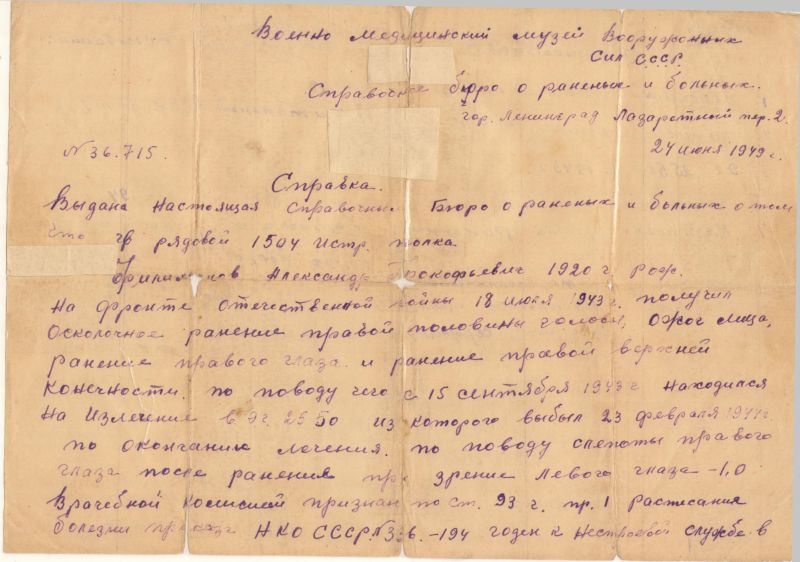 Военно Медицинский музей Вооружонних
Сил С.С.С.Р.
Справочное бюро о раненых и больных.
гор. Ленинград Лазаретный пер. 2.
№ 36.715.
24 июня 1949 г.
Справка.
Выдана настоящая Справочным Бюро о раненых и больных о том
что гв рядовой 1504 Истр. полка
Филимонов Александр Прокофьевич 1920 г. рож.
на фронте отечественной войны 18 июля 1943 г. получил
Осколочное ранение правой половины головы, ожог лица,
ранение правого глаза и ранение правой верхней
конечности. по поводу чего с 15 сентября 1943 г находился
на излечение в Эг. 2550 из которого выбыл 23 февраля 1944 г.
по окончанию лечения. по поводу слепоты правого
глаза после ранения при зрение левого глаза -1,0
Врачебной комисией признан по ст. 93 г. пр. 1 Расписания
болезни приказа НКО СССР. № 336.-194 годен к нестроевой службе в